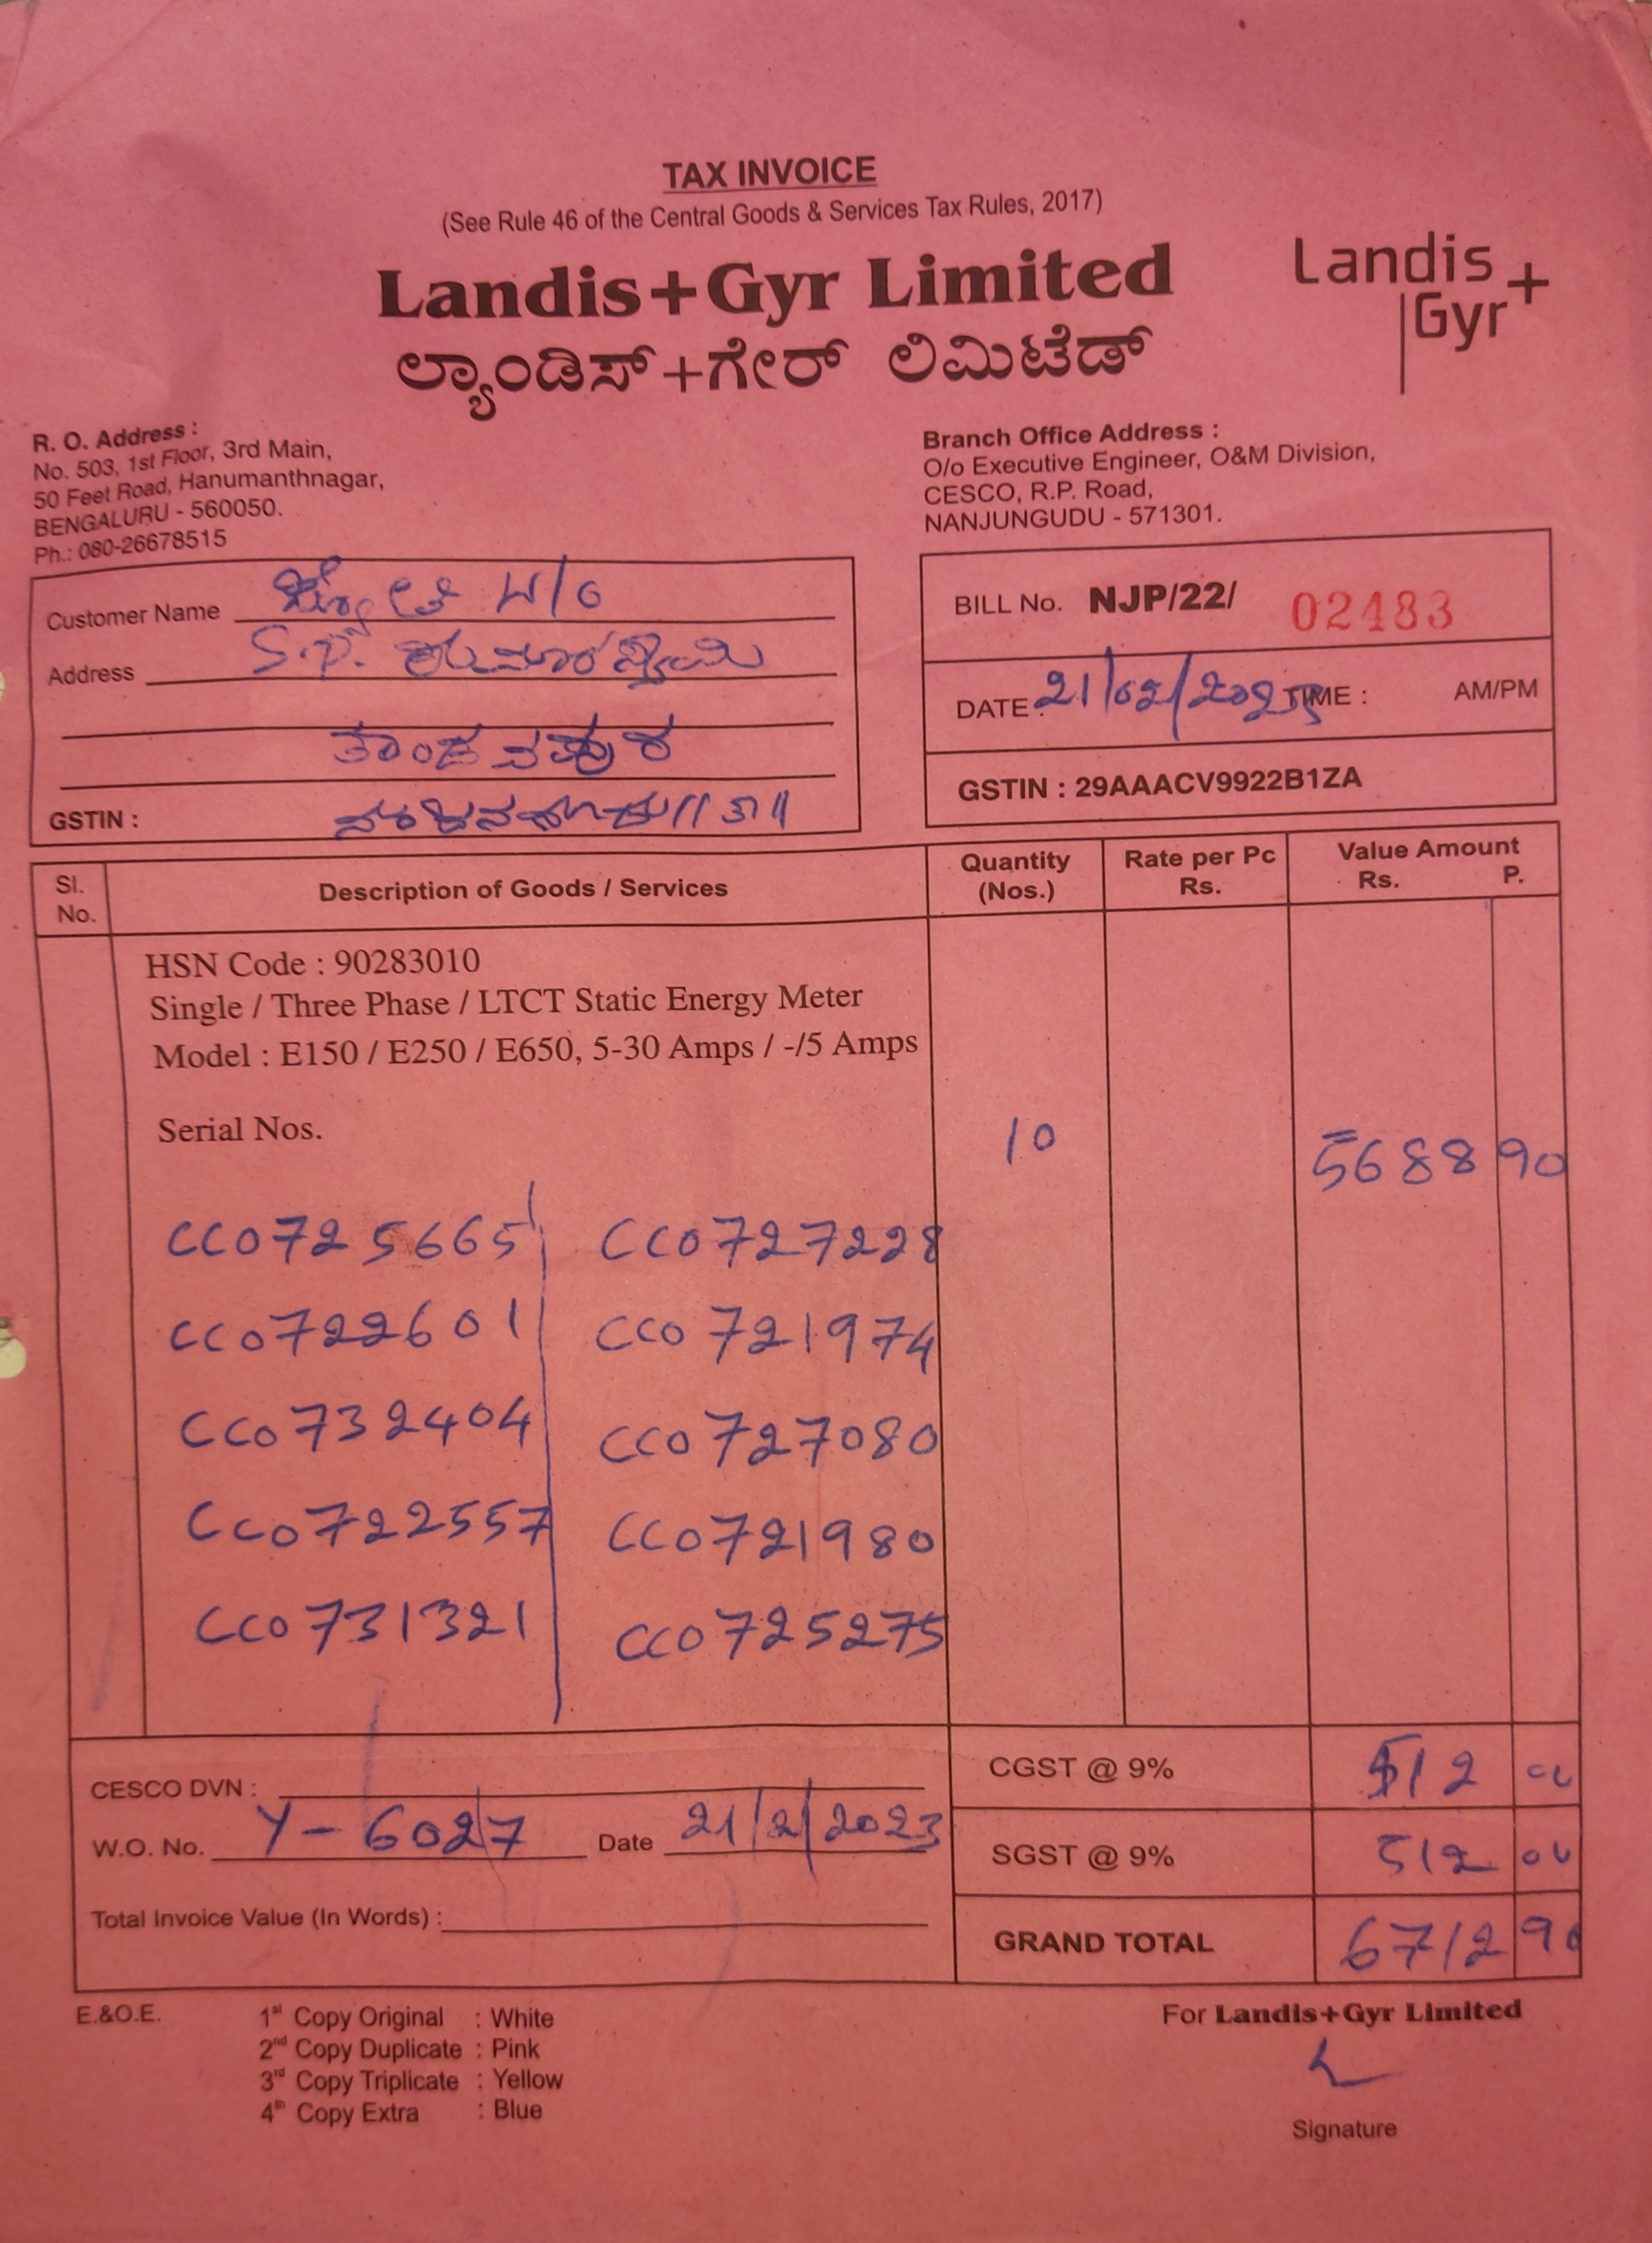 TAX INVOICE
(See Rule 46 of the Central Goods & Services Tax Rules, 2017)
Landis+Gyr Limited
ಲ್ಯಾಂಡಿಸ್+ಗೇರ್ ಲಿಮಿಟೆಡ್
Landis+
Gyr
R. O. Address :
No. 503, 1st Floor, 3rd Main,
50 Feet Road, Hanumanthnagar,
BENGALURU - 560050.
Ph.: 080-26678515
Branch Office Address :
O/o Executive Engineer, O&M Division,
CESCO, R.P. Road,
NANJUNGUDU - 571301.
Customer Name W/O
Address S.P. ಕುಮಾರಸ್ವಾಮಿ
ತಾಂಡವಪುರ
GSTIN :
BILL No. NJP/22/ 02483
DATE : 21/02/2023 TIME : AM/PM
GSTIN : 29AAACV9922B1ZA
Sl. No. Description of Goods / Services Quantity (Nos.) Rate per Pc Rs. Value Amount Rs. P.
HSN Code : 90283010
Single / Three Phase / LTCT Static Energy Meter
Model : E150 / E250 / E650, 5-30 Amps / -/5 Amps
Serial Nos. 10 5688 90
CC0725665 CC0727228
CC0722601 CC0721974
CC0732404 CC0727080
CC0722557 CC0721980
CC0731321 CC0725275
CESCO DVN :
W.O. No. Y-6027 Date 21/2/2023
Total Invoice Value (In Words) :
CGST @ 9% 512 00
SGST @ 9% 512 00
GRAND TOTAL 6712 90
E.&O.E.
1st Copy Original : White
2nd Copy Duplicate : Pink
3rd Copy Triplicate : Yellow
4th Copy Extra : Blue
For Landis+Gyr Limited
Signature